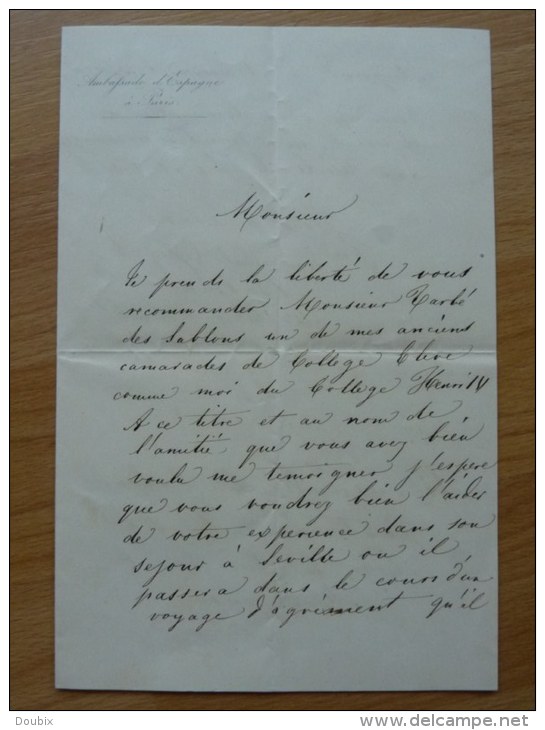 Ambassade d'Espagne
à Paris
Monsieur
Je prends la liberté de vous
recommander Monsieur Tarbé
des Sablons un de mes anciens
camarades de College Eleve
comme moi du College Henri IV
A ce titre et au nom de
l'amitié que vous avez bien
voulu me temoigner j'espere
que vous voudrez bien l'aider
de votre experience dans son
sejour à Seville ou il
passera dans le cours d'un
voyage d'agrément qu'il
Doubix
www.delcampe.net